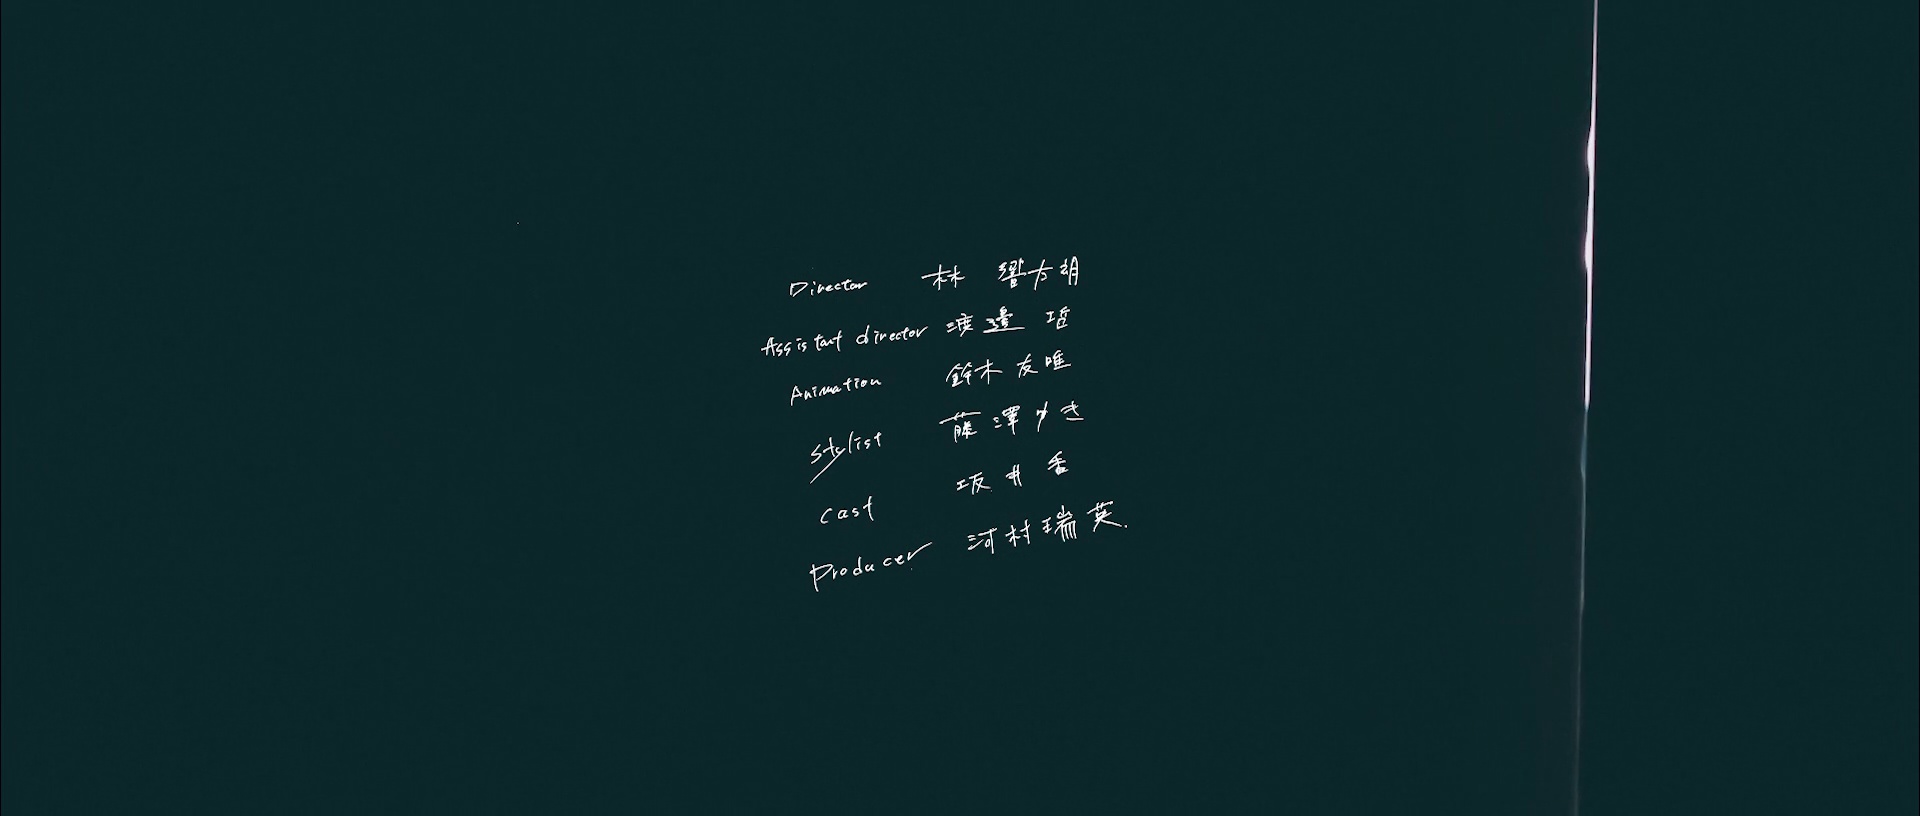 Director 林 響太朗
Assistant director 渡邉 哲
Animation 鈴木友唯
Stylist 藤澤ゆき
Cast 坂井香
Producer 河村瑞英